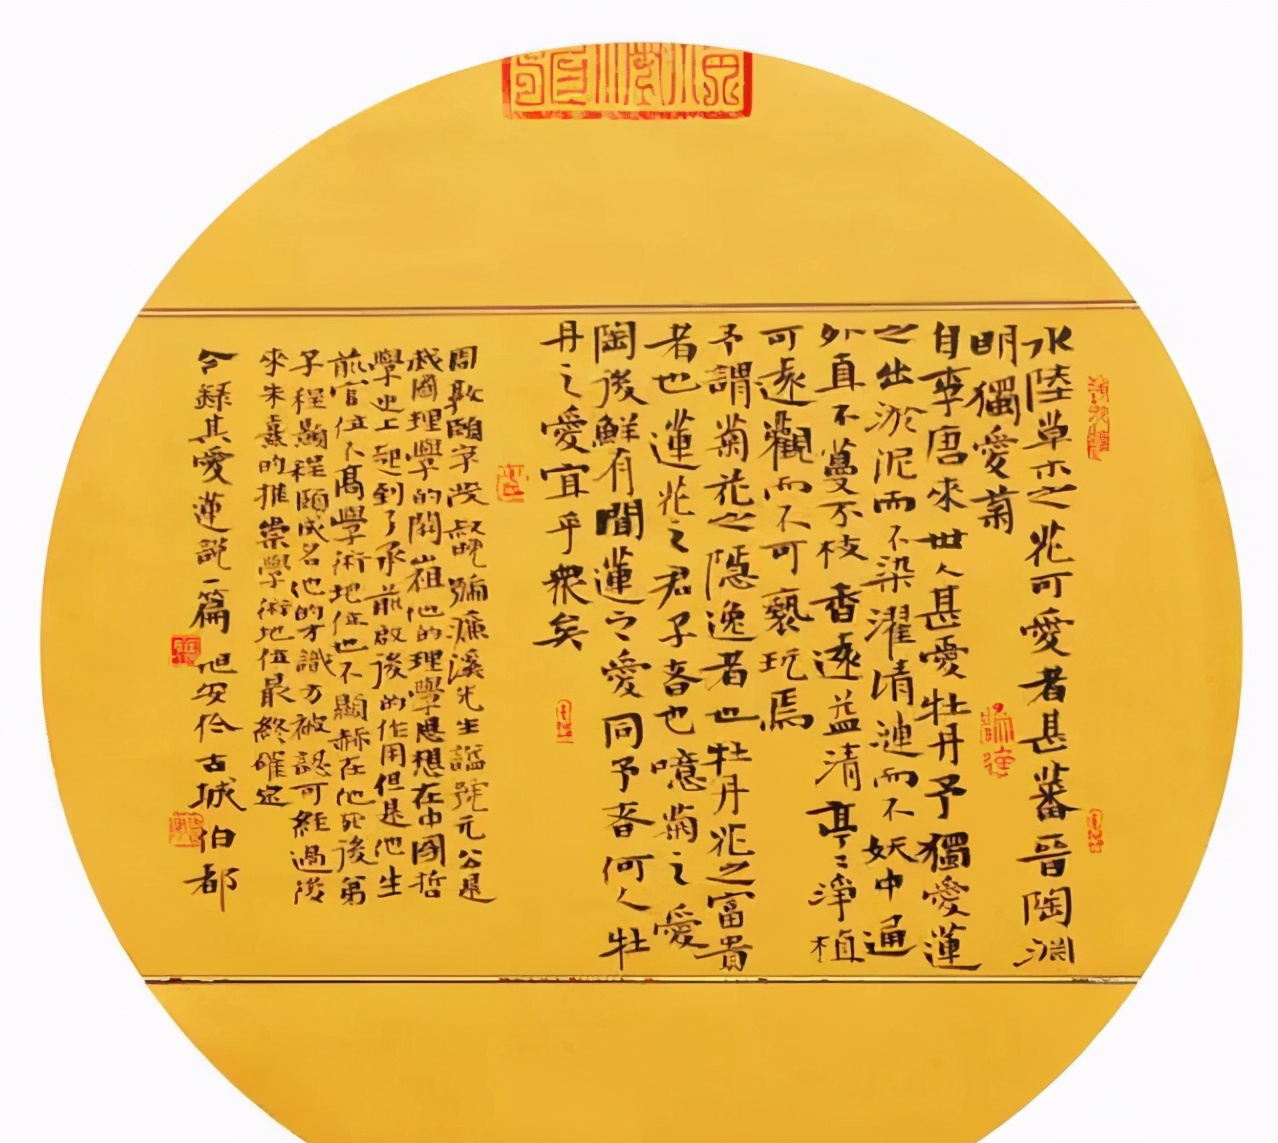 水陸草木之花可愛者甚蕃晉陶淵
明獨愛菊
自李唐來世人甚愛牡丹予獨愛蓮
之出淤泥而不染濯清漣而不妖中通
外直不蔓不枝香遠益清亭〻淨植
可遠觀而不可褻玩焉
予謂菊花之隱逸者也牡丹花之富貴
者也蓮花之君子者也噫菊之愛
陶後鮮有聞蓮之愛同予者何人牡
丹之愛宜乎衆矣
周敦頤字茂叔晚號濂溪先生謚號元公是
我國理學的開山祖他的理學思想在中國哲
學史上起到了承前啟後的作用但是他生
前官位不高學術地位也不顯赫在他死後第
子程顥程頤成名他的才識方被認可經過後
來朱熹的推崇學術地位最終確定
今錄其愛蓮說一篇 旭安於古城伯都